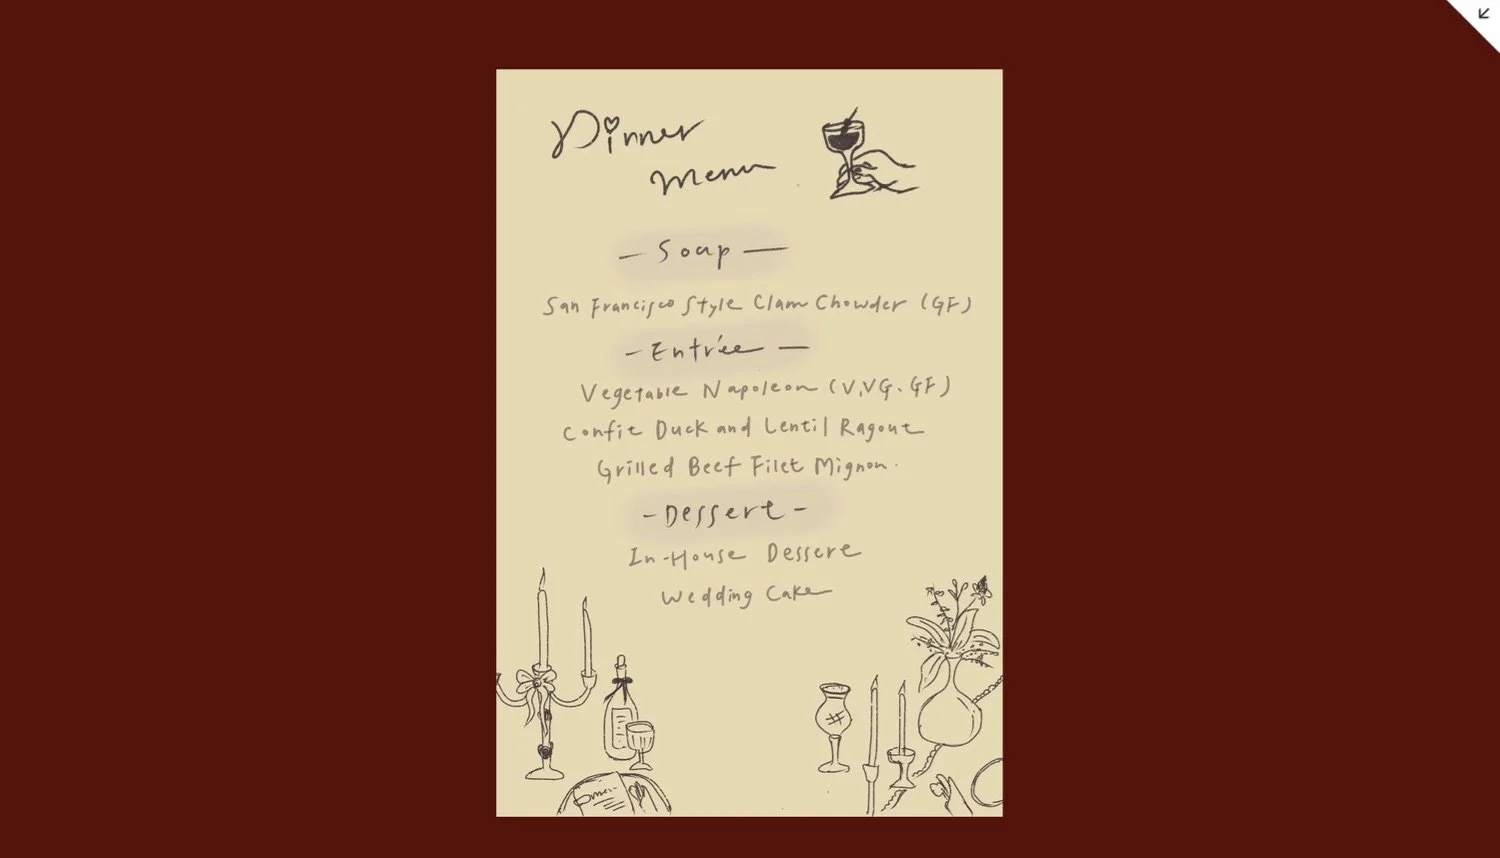 Dinner
Menu
- Soap -
San Francisco Style Clam Chowder (GF)
- Entrée -
Vegetable Napoleon (V,VG.GF)
Confit Duck and Lentil Ragout
Grilled Beef Filet Mignon.
- Dessert -
In-House Dessert
Wedding Cake